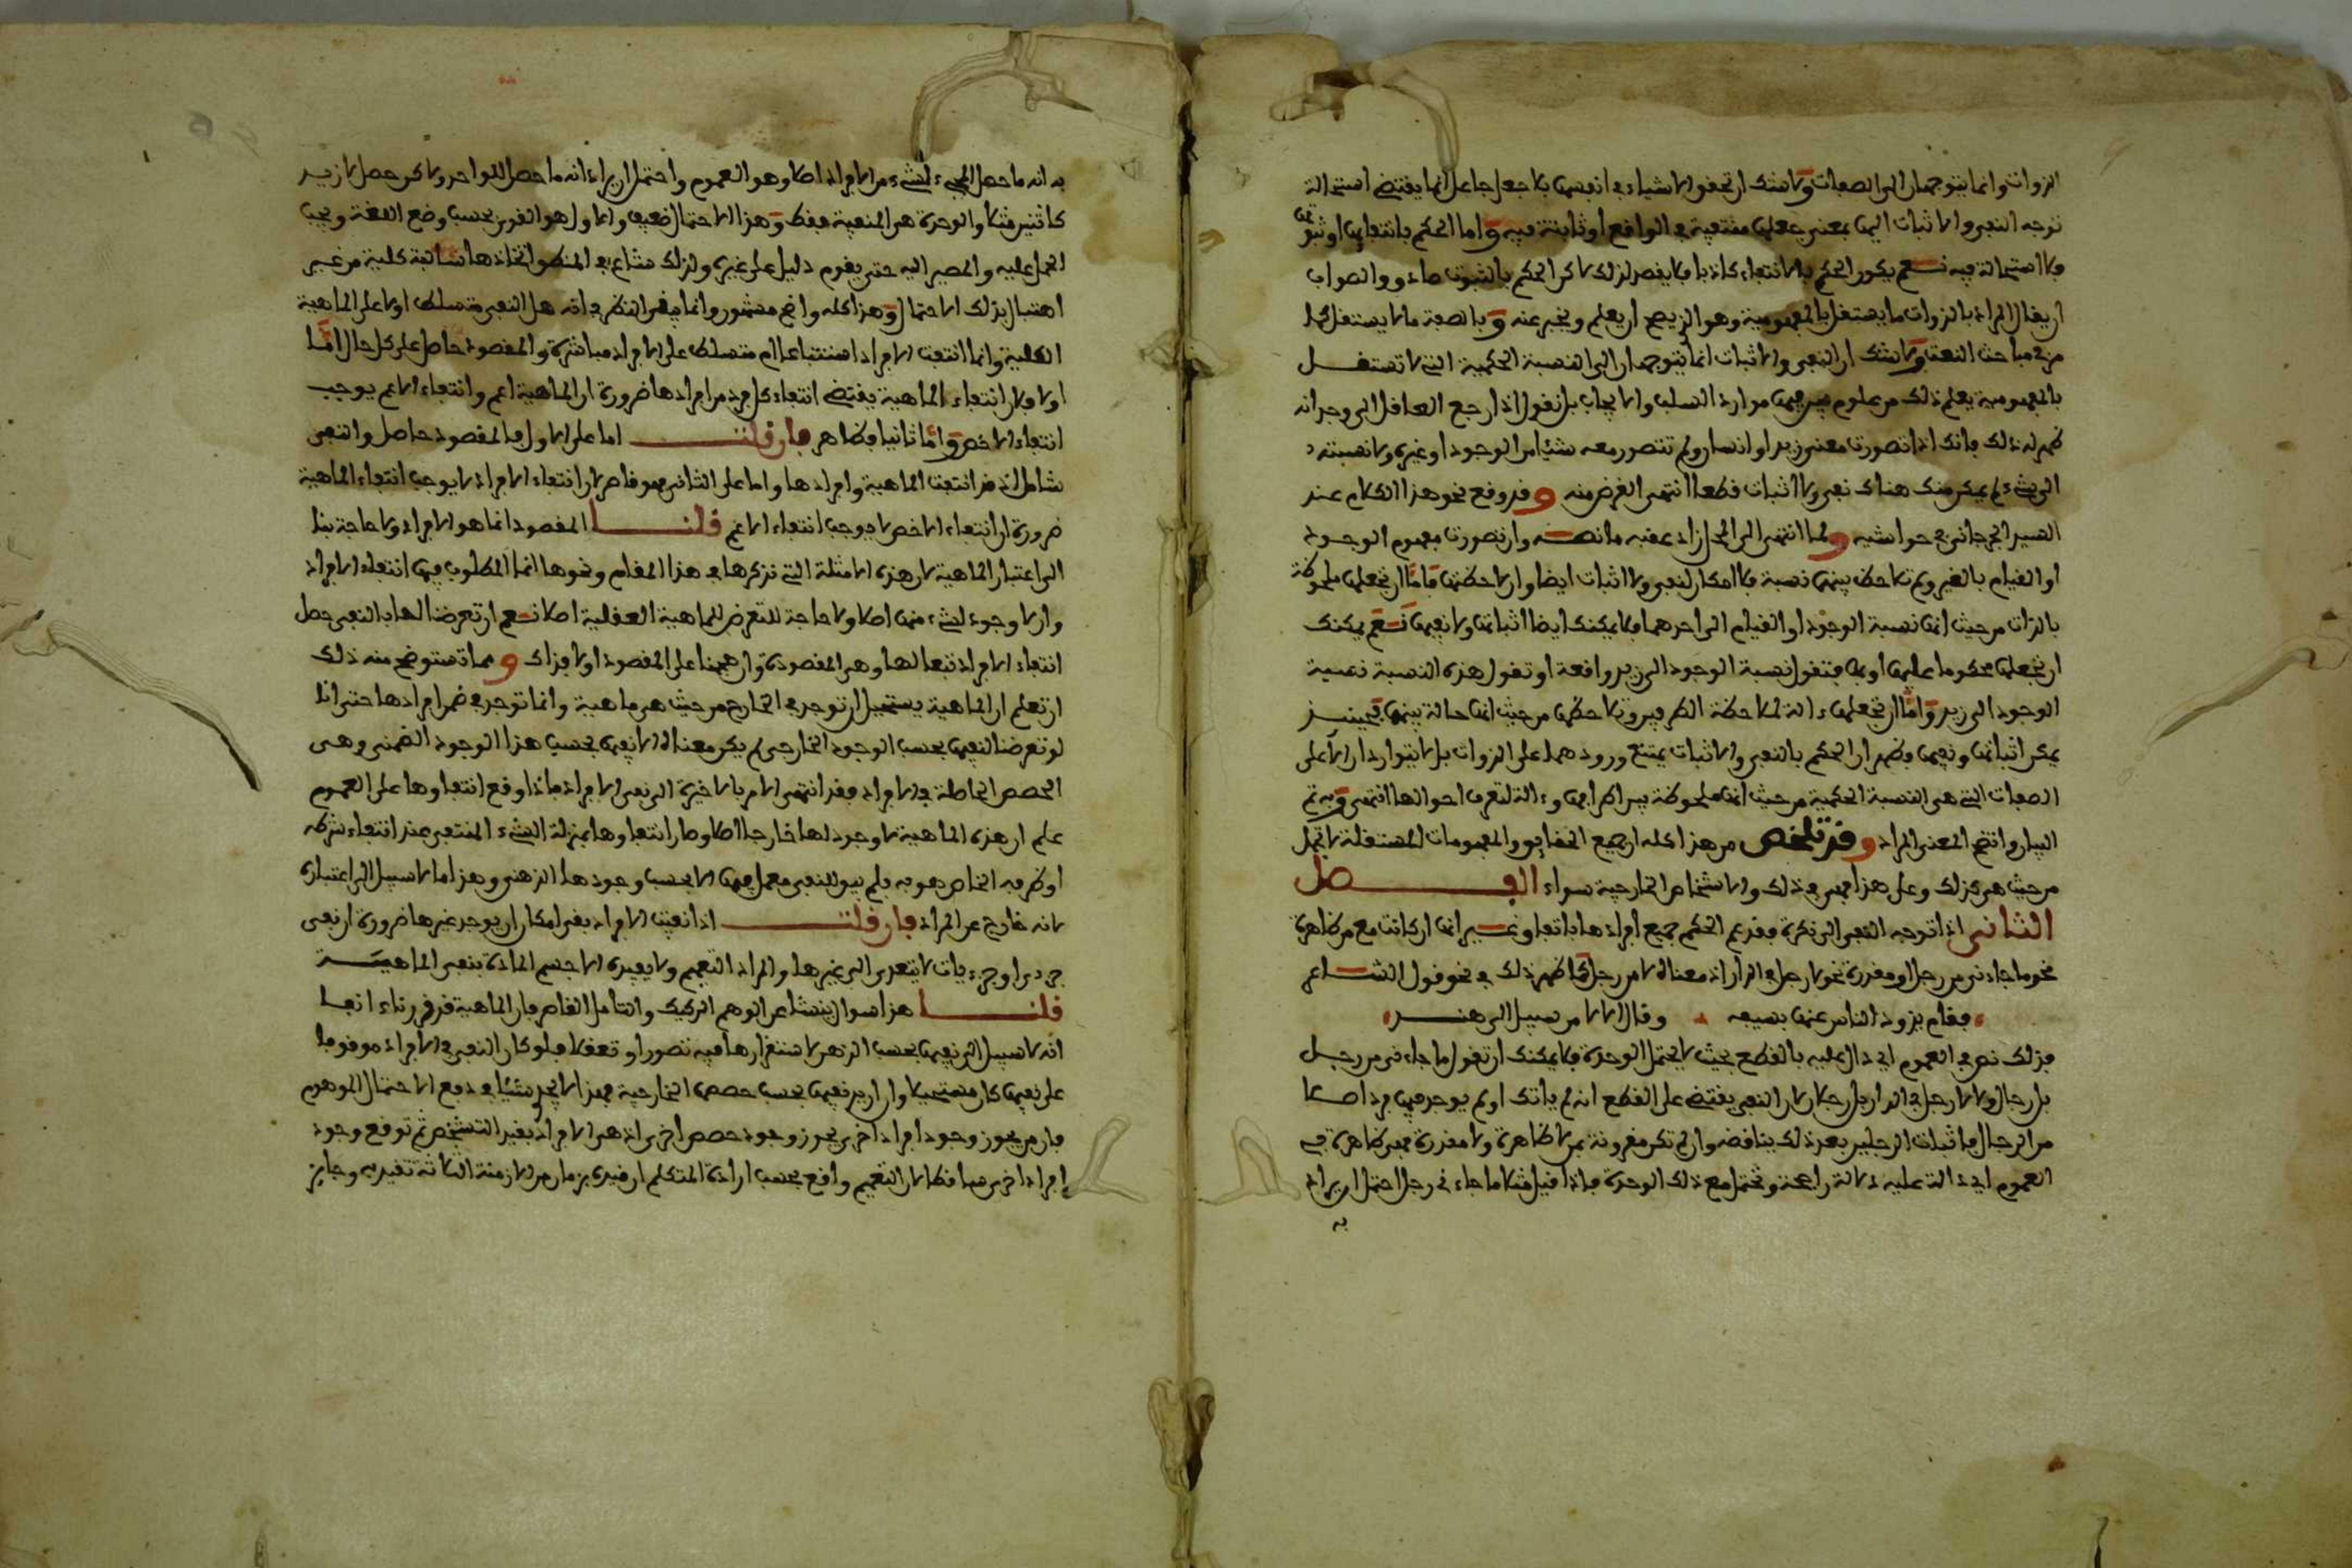 الذوات وانما يتوجهان الى الصفات ولا شك ان تحقق الاشياء في انفسها بلا جعل جاعل انما يقتضي استحالة
توجه النفي والاثبات اليها بمعنى جعلها منتفية في الواقع او ثابتة فيه واما الحكم بانتفايها او ثبوتها
فلا استحالة فيه نعم يكون الحكم بالانتفاء كاذبا فلا يقصد لذلك لاكن الحكم بالثبوت صادق والصواب
ان يقال المراد بالذوات ما يستقل بالمفهومية وهو الذي يصح ان يعلم ويخبر عنه وبالصفة ما لا يستقل كما
مر في مباحث النعت ولا شك ان النفي والاثبات انما يتوجهان الى النسبة الحكمية التي لا تستقل
بالمفهومية يعلم ذلك من علوم موارد السلب والايجاب بل نقول اذا رجع العاقل الى وجدانه
ظهر له ذلك فانك اذا تصورت معنى زيد او انسان ولم تتصور معه شيئا من الوجود او غيره ولا نسبته
الى شيء لم يمكن منك هناك نفي ولا اثبات قطعا انتهى الغرض منه وقد وقع نحو هذا الكلام عند
السيد الجرجاني في حواشيه ولما انتهى الى المحل زاد عقبه ما نصه وان تصورت مفهوم الوجود
او القيام بالغير ولم تلاحظ بينهما نسبة فلا امكان لنفي ولا اثبات ايضا وان لاحظتها فاما ان تجعلها ملحوظة
بالذات من حيث انها نسبة الوجود او القيام الى احدهما فلا يمكنك ايضا اثباتها ولا نفيها نعم يمكنك
ان تجعلها محكوما عليها او بها فتقول نسبة الوجود الى زيد واقعة او تقول هذه النسبة نسبة
الوجود الى زيد واما ان تجعلها ءالة لملاحظة الطرفين وتلاحظها من حيث انها حالة بينهما فحينئذ
يمكن اثباتها ونفيها فظهر ان الحكم بالنفي والاثبات يمتنع ورودهما على الذوات بل لا يتواردان الا على
الصفات التي هي النسبة الحكمية من حيث انها ملحوظة بين اطرافها وءالة لتعرف احوالها انتهى وبه تم
البيان واتضح المعنى المراد وقد تلخص من هذا كله ان جميع الحقايق والمفهومات المستقلة لا تقبل
من حيث هي كذلك وعلى هذا فهي في ذلك والاشخاص الخارجية سواء الفصل
الثاني اذا توجه النفي الى نكرة فقد عم الحكم جميع افرادها باتفاق غير انها ان كانت مع من ظاهرة
نحو ما جاءني من رجل او مقدرة نحو لا رجل في الدار اذ معناه لا من رجل كما ظهر ذلك في نحو قول الشاعر
فقام يذود الناس عنها بسيفه وقال الا لا من سبيل الى هند
فذلك نص في العموم اي دال عليه بالقطع بحيث لا يحتمل الوحدة فلا يمكنك ان تقول ما جاءني من رجل
بل رجال ولا لا رجل في الدار بل رجلان لان النفي يقتضي على القطع انه لم ياتك او لم يوجد فيها فرد اصلا
من الرجال فاثبات الرجلين بعد ذلك يناقضه وان لم تكن مقرونة بمن لا ظاهرة ولا مقدرة فهي ظاهرة في
العموم اي دالة عليه دلالة راجحة وتحتمل مع ذلك الوحدة فاذا قيل مثلا ما جاءني رجل احتمل ان يراد
به
به انه ما حصل المجيء لشيء من الافراد اصلا وهو العموم واحتمل ان يراد انه ما حصل للواحد ولاكن حصل لازيد
كاثنين مثلا والوحدة هي المنفية فقط وهذا الاحتمال ضعيف والاول هو القوي بحسب وضع اللغة ويجب
الحمل عليه والمصير اليه حتى يقوم دليل على غيره ولذلك شاع في المنطق اتخاذها سالبة كلية من غير
اهتبال بذلك الاحتمال وهذا كله واضح مشهور وانما بقي النظر في انه هل النفي متسلط اولا على الماهية
الكلية وانما انتفت الافراد استتباعا ام متسلط على الافراد مباشرة والمقصود حاصل على كل حال اما
اولا فلان انتفاء الماهية يقتضي انتفاء كل فرد من افرادها ضرورة ان الماهية اعم وانتفاء الاعم يوجب
انتفاء الاخص واما ثانيا فظاهر فان قلت اما على الاول فالمقصود حاصل والنفي
شامل اذ قد انتفت الماهية وافرادها واما على الثاني فهو قاصر لان انتفاء الافراد لا يوجب انتفاء الماهية
ضرورة ان انتفاء الاخص لا يوجب انتفاء الاعم قلنا المقصود انما هو الافراد ولا حاجة بنا
الى اعتبار الماهية لان هذه الامثلة التي نذكرها في هذا المقام ونحوها انما المطلوب فيها انتفاء الافراد
وان لا وجود لشيء منها اصلا ولا حاجة للتعرض للماهية العقلية اصلا نعم ان تعرضنا لها بالنفي حصل
انتفاء الافراد تبعا لها وهي المقصودة وان هجمنا على المقصود اولا فذاك ومما تستوضح منه ذلك
ان تعلم ان الماهية يستحيل ان توجد في الخارج من حيث هي ماهية وانما توجد في ضمن افرادها حتى انا
لو تعرضنا لنفيها بحسب الوجود الخارجي لم يكن معناه الا نفيها بحسب هذا الوجود الضمني وهي
الحصص الحاصلة في الافراد فقد انتهى الامر بالاخرة الى نفي الافراد فاذا وقع انتفاوها على العموم
علم ان هذه الماهية لا وجود لها خارجا اصلا وصار انتفاوها بمنزلة الشيء المنتفي عند انتفاء شرطه
او ظرفه الخاص هو به فلم يبق للنفي معمل فيها الا بحسب وجودها الذهني وهذا مما لا سبيل الى اعتباره
لانه خارج عن المراد فان قلت اذا نفيت الافراد بقي امكان ان يوجد غيرها ضرورة ان نفي
جزء او جزءيات لا يتعدى الى غيرها والمراد التعميم ولا يفيده الا حسم المادة بنفي الماهية
قلنا هذا سوال ينشا عن الوهم الركيك والتامل القاصر فان الماهية قد قررناء انفا
انه لا سبيل الى نفيها بحسب الذهن لاستقرارها فيه تصورا وتعقلا فلو كان النفي في الافراد موقوفا
على نفيها كان مستحيلا وان اريد نفيها بحسب حصصها الخارجية فهذا لا يجدي شيئا في دفع الاحتمال الموهوم
فان من يجوز وجود افراد اخر يجوز وجود حصص اخر اذ هي الافراد بقيد التشخص ثم توقع وجود
افراد اخر ساقط لان التعميم واقع بحسب ارادة المتكلم ان قيده بزمان من الازمنة الثلاثة تقيد به وجايز